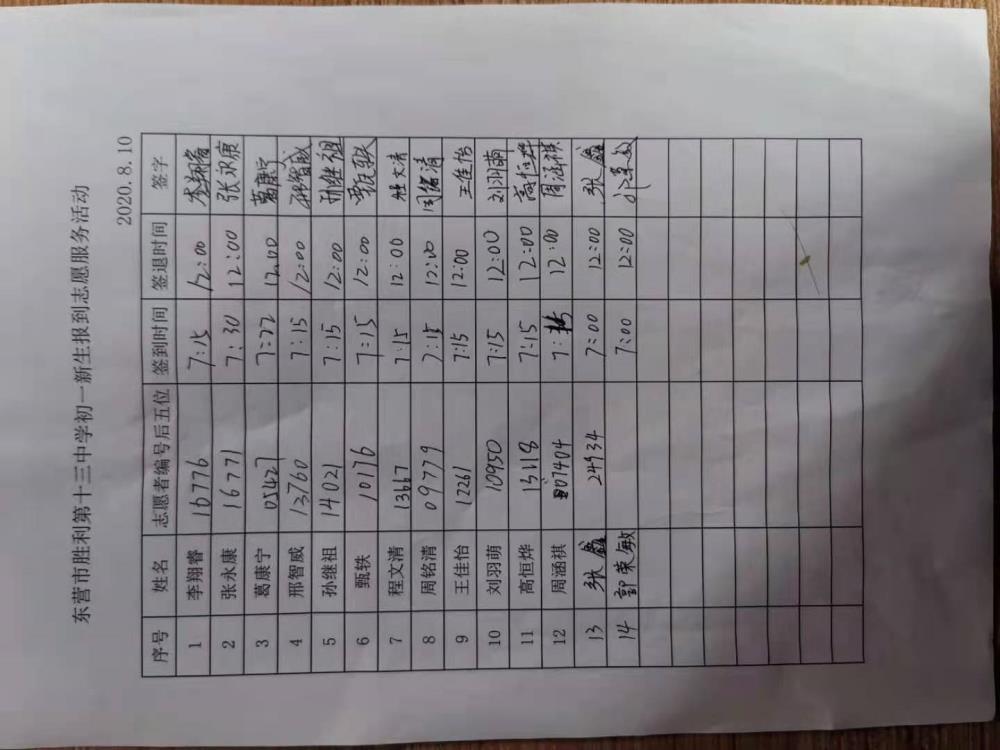 东营市胜利第十三中学初一新生报到志愿服务活动
2020.8.10
序号 姓名 志愿者编号后五位 签到时间 签退时间 签字
1 李翔睿 16776 7:15 12:00 李翔睿
2 张永康 16771 7:30 12:00 张永康
3 葛康宁 05427 7:22 12:00 葛康宁
4 邢智威 13760 7:15 12:00 邢智威
5 孙继祖 14021 7:15 12:00 孙继祖
6 甄轶 10176 7:15 12:00 甄轶
7 程文清 13667 7:15 12:00 程文清
8 周铭清 09779 7:15 12:00 周铭清
9 王佳怡 12261 7:15 12:00 王佳怡
10 刘羽萌 10950 7:15 12:00 刘羽萌
11 高恒烨 13118 7:15 12:00 高恒烨
12 周涵祺 07404 7: 12:00 周涵祺
13 张鑫 24934 7:00 12:00 张鑫
14 郭荣敏 7:00 12:00